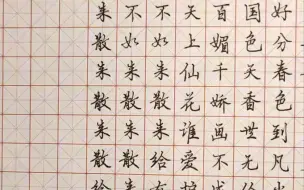 好分春色到凡
国色天香世无
百媚千娇画不
天上仙花谁爱
不如朱散朱给
不如朱散朱散
朱散朱散朱散